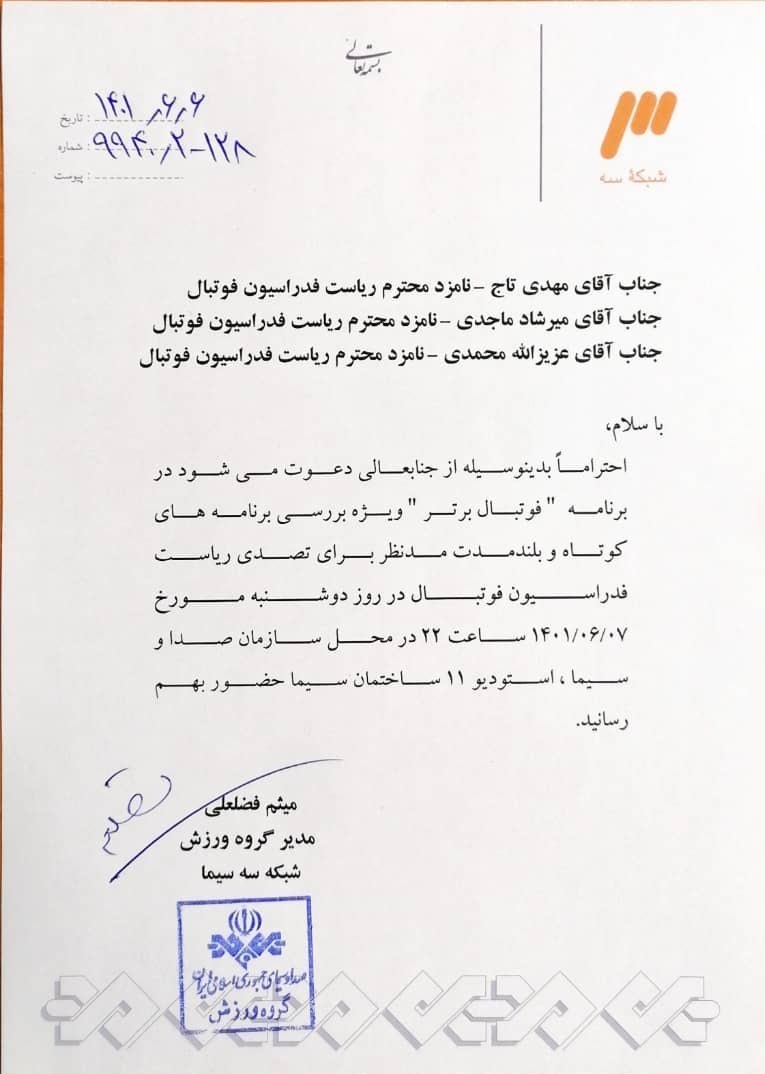 بسمه تعالی
شبکهٔ سه
تاریخ : ۱۴۰۱/۶/۶
شماره : ۹۹۴۰/۲-۱۲۸
پیوست :
جناب آقای مهدی تاج – نامزد محترم ریاست فدراسیون فوتبال
جناب آقای میرشاد ماجدی – نامزد محترم ریاست فدراسیون فوتبال
جناب آقای عزیزالله محمدی – نامزد محترم ریاست فدراسیون فوتبال
با سلام،
احتراماً بدینوسیله از جنابعالی دعوت می شود در
برنامه " فوتبال برتر " ویژه بررسی برنامه های
کوتاه و بلندمدت مدنظر برای تصدی ریاست
فدراسیون فوتبال در روز دوشنبه مورخ
۱۴۰۱/۰۶/۰۷ ساعت ۲۲ در محل سازمان صدا و
سیما ، استودیو ۱۱ ساختمان سیما حضور بهم
رسانید.
میثم فضلعلی
مدیر گروه ورزش
شبکه سه سیما
صدا و سیمای جمهوری اسلامی ایران
گروه ورزش